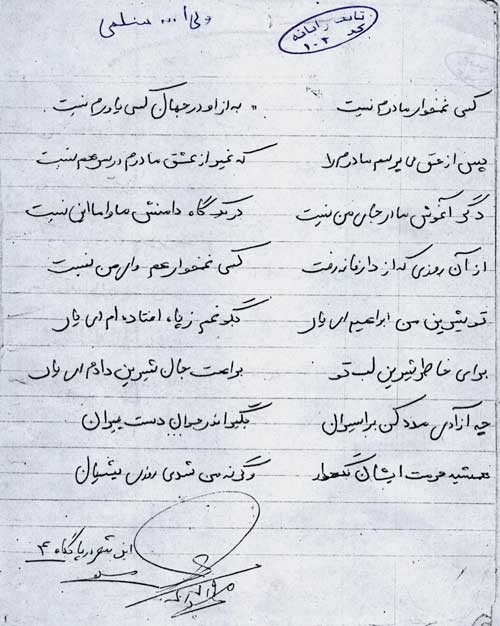 ولی ا...
رایانه
کد ۱۰۲
کسی غمخوار مادرم نیست به از او در جهان کسی یاورم نیست
پس از حق می پرسم مادرم را که غیر از عشق مادرم در سرم نیست
دگر آغوش مادر جای من نیست دامنش ماوای من نیست
از آن روزی که از دار فنا رفت کسی غمخوار غم های من نیست
تو شیرین من ابراهیم ای یار ز پا افتاده ام ای یار
برای خاطر شیرین لب تو برایت جان شیرین دادم ای یار
چه آزادی مدد کن بر اسیران بگیر اندر جوان دست پیران
همیشه حرمت ایشان نگهدار وگرنه من شدی روزی پشیمان
این شعر در پایگاه ۴